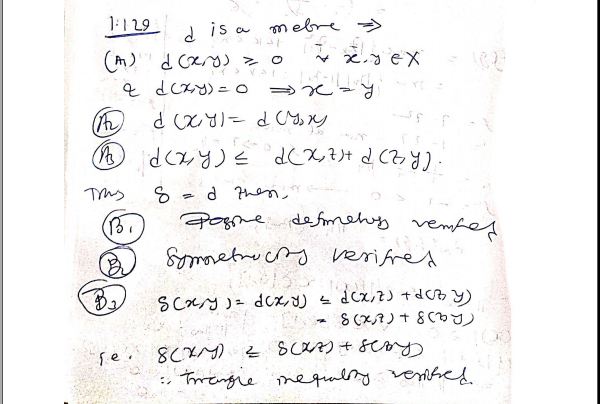 1.129 d is a metric ⇒
(A₁) d(x,y) ≥ 0 ∀ x, y ∈ X
& d(x,y) = 0 ⟹ x = y
A₂ d(x,y) = d(y,x)
A₃ d(x,y) ≤ d(x,z) + d(z,y).
Thus δ = d then,
B₁ Positive definiteness verified
B₂ Symmetricity verified
B₃ δ(x,y) = d(x,y) ≤ d(x,z) + d(z,y)
= δ(x,z) + δ(z,y)
i.e. δ(x,y) ≤ δ(x,z) + δ(z,y)
∴ Triangle inequality verified.